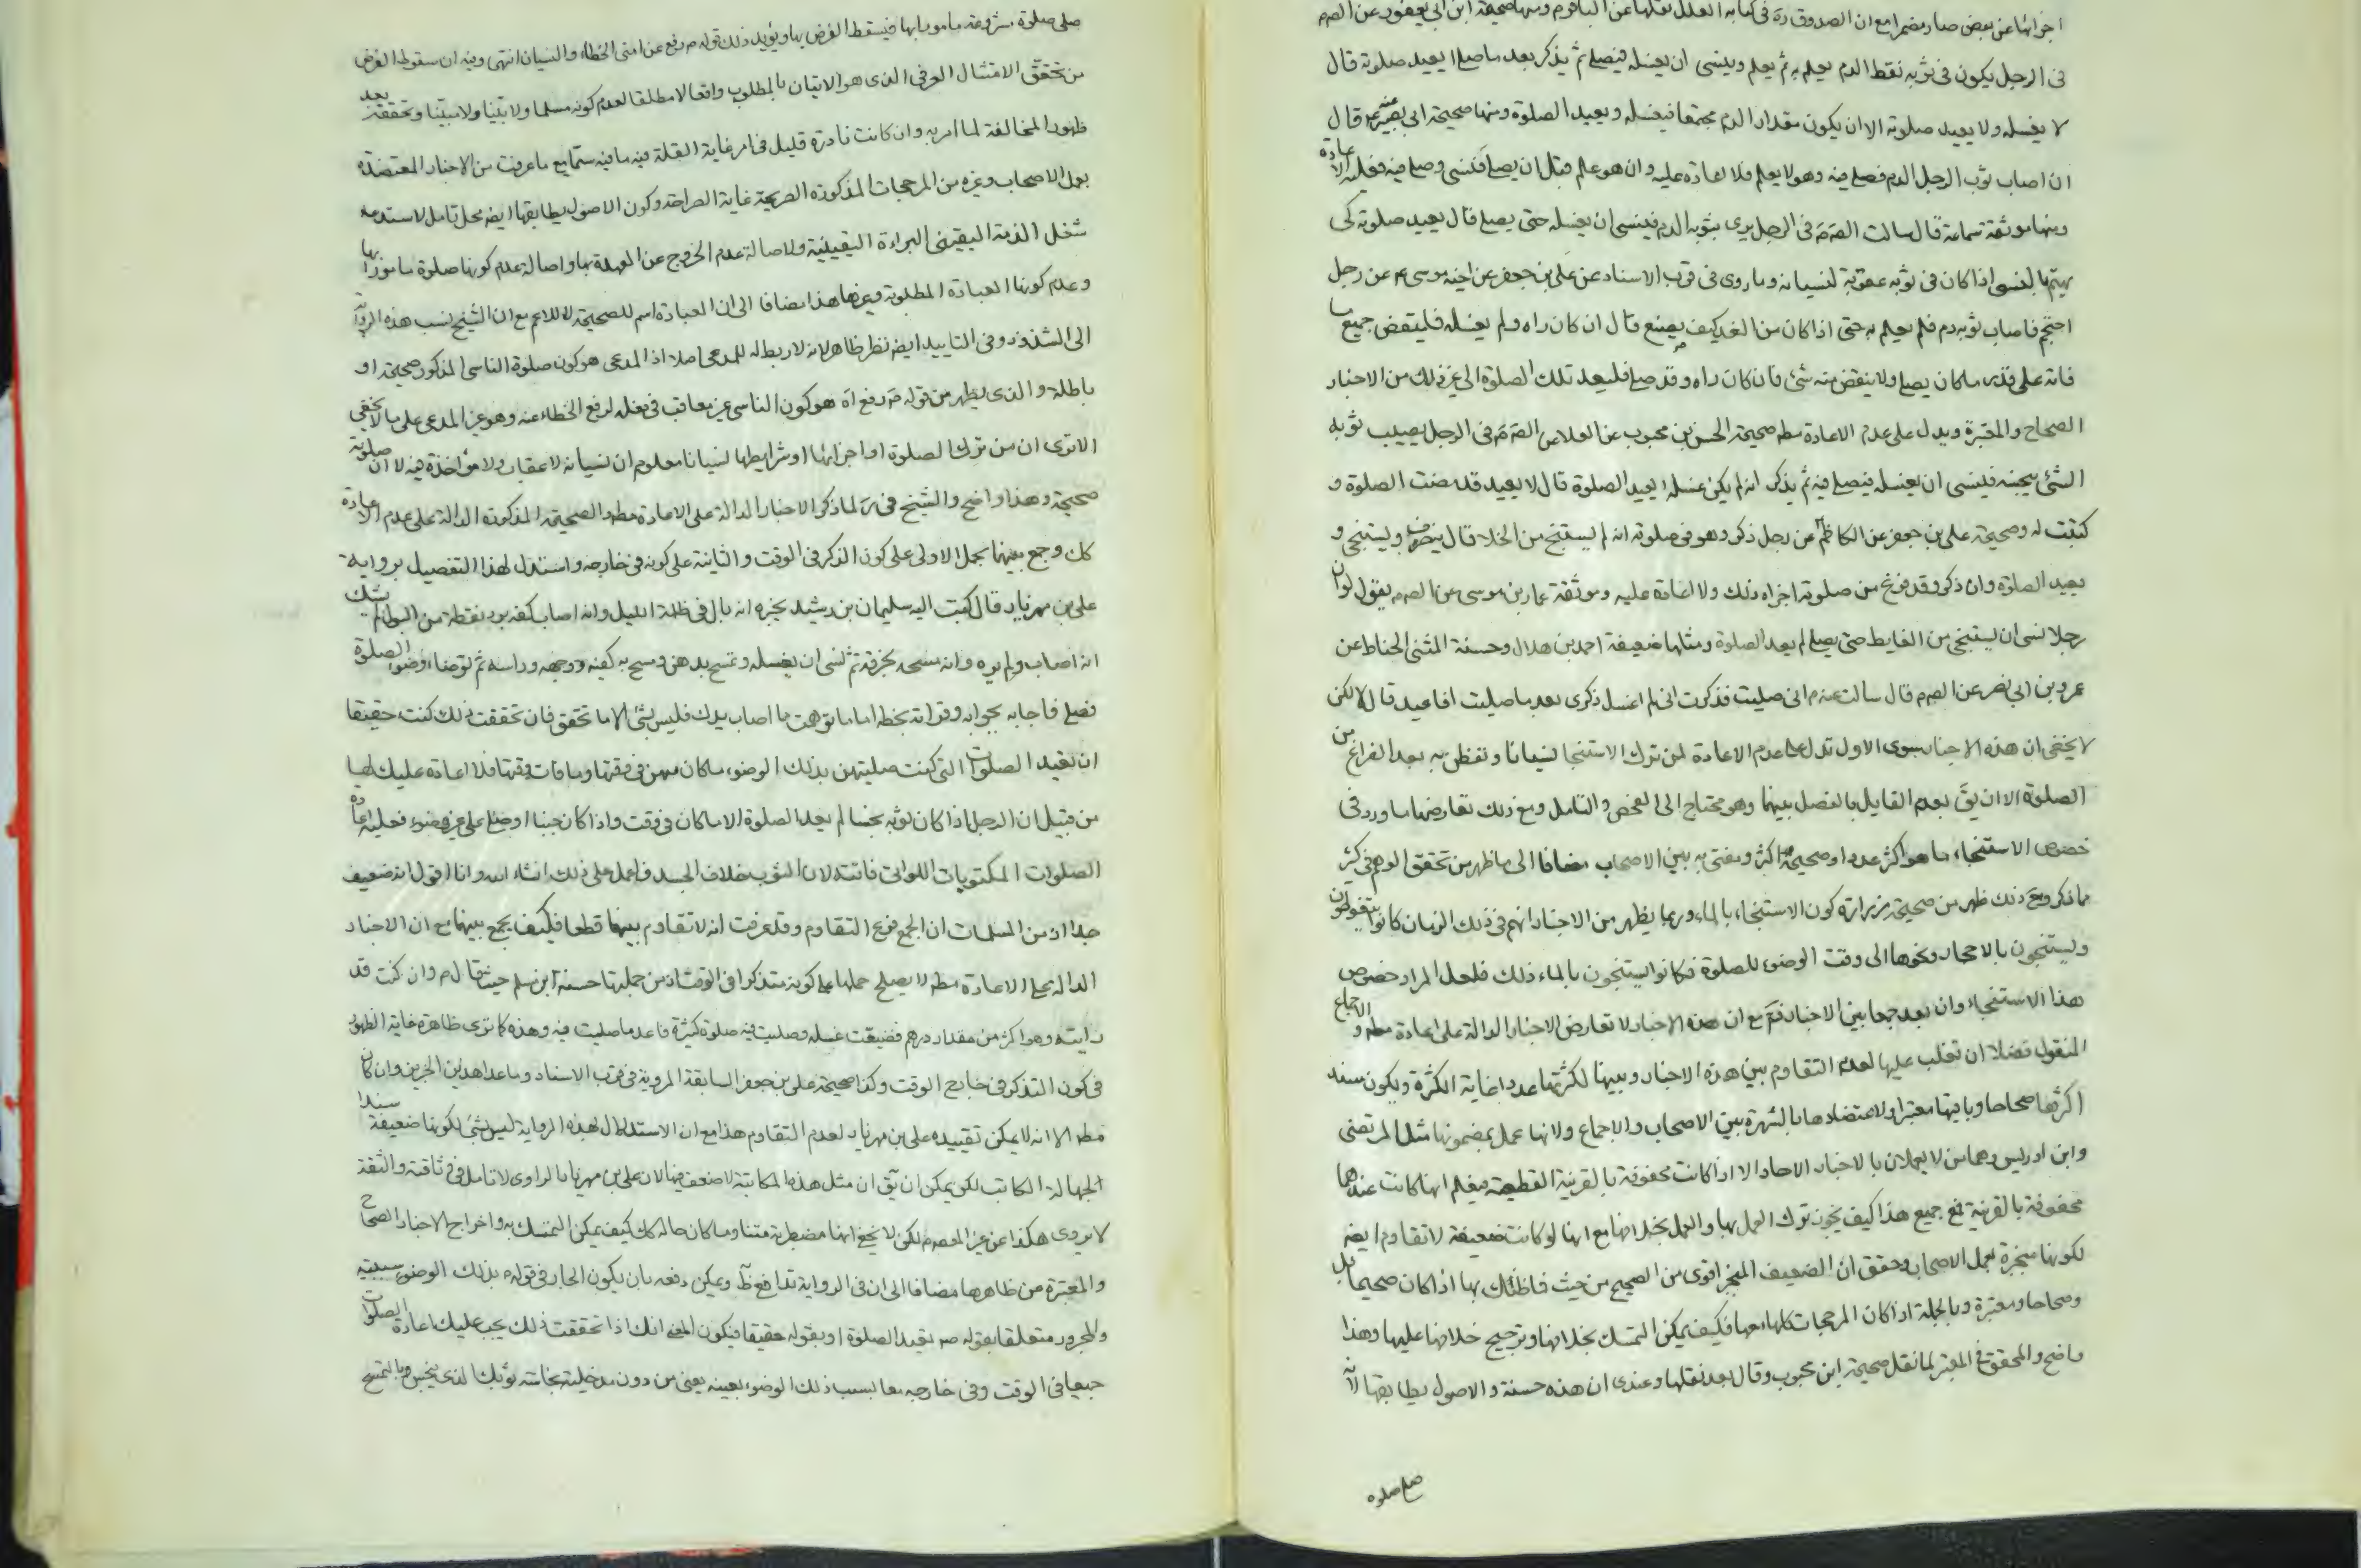 اجزائها عن بعض صار مضمرا مع ان الصدوق ره فى كتابه العلل نقلها عن الباقر م ومنها صحيحة ابن ابى يعفور عن الص م
فى الرجل يكون فى ثوبه نقط الدم يعلم به ثم يعلم وينسى ان يغسله فيصلى ثم يذكر بعد ما صلى ايعيد صلوته قال
لا يغسله ولا يعيد صلوته الا ان يكون مقدار الدرهم مجتمعا فيغسله ويعيد الصلوة ومنها صحيحة ابى بصير عنه م قال
ان اصاب ثوب الرجل الدم فصلى فيه وهو لا يعلم فلا اعادة عليه وان هو علم قبل ان يصلى فنسى وصلى فيه فعليه الاعادة
ومنها موثقة سماعة قال سالت الص م فى الرجل يرى بثوبه الدم فينسى ان يغسله حتى يصلى قال يعيد صلوته كى
يهتم بالشئ اذا كان فى ثوبه عقوبة لنسيانه وما روى فى قرب الاسناد عن على بن جعفر عن اخيه موسى م عن رجل
احتجم فاصاب ثوبه دم فلم يعلم به حتى اذا كان من الغد كيف يصنع قال ان كان راه ولم يغسله فليقض جميع ما
فاته على قدر ما كان يصلى ولا ينقض منه شئ فان كان راه وقد صلى فليعد تلك الصلوة الى غير ذلك من الاخبار
الصحاح والمعتبرة ويدل على عدم الاعادة مطه صحيحة الحسن بن محبوب عن العلا عن الص م فى الرجل يصيب ثوبه
الشئ ينجسه فينسى ان يغسله فيصلى فيه ثم يذكر انه لم يكن غسله ايعيد الصلوة قال لا يعيد قد مضت الصلوة و
كتبت له وصحيحة على بن جعفر عن الكاظم م عن رجل ذكر وهو فى صلوته انه لم يستنج من الخلا قال ينصرف ويستنجى و
يعيد الصلوة وان ذكر وقد فرغ من صلوته اجزاه ذلك ولا اعادة عليه وموثقة عمار بن موسى عن الص م يقول لو ان
رجلا نسى ان يستنجى من الغايط حتى يصلى لم يعد الصلوة ومثلها ضعيفة احمد بن هلال وحسنة المثنى الحناط عن
عمرو بن ابى نصر عن الص م قال سالت عنه م انى صليت فذكرت انى لم اغسل ذكرى بعد ما صليت افاعيد قال لا لكن
لا يخفى ان هذه الاخبار سوى الاول تدل على عدم الاعادة لمن ترك الاستنجا نسيانا وتفطن به بعد الفراغ من
الصلوة الا ان يق بعدم القايل بالفصل بينهما وهو محتاج الى الفحص والتامل ومع ذلك تعارضها ما ورد فى
خصوص الاستنجاء ما هو اكثر عددا وصحيحه اكثر ومفتى به بين الاصحاب مضافا الى ما ظهر من تحقق الوهم فى كثير
مما ذكر ومع ذلك ظهر من صحيحة زرارة كون الاستنجاء بالماء وربما يظهر من الاخبار انهم فى ذلك الزمان كانوا يتغوطون
ويستنجون بالاحجار ونحوها الى وقت الوضوء للصلوة فكانوا يستنجون بالماء ذلك فلعل المراد خصوص
هذا الاستنجاء وان بعد جمعا بين الاخبار فتم مع ان هذه الاخبار لا تعارض الاخبار الدالة على اعادة مطه و الاجماع
المنقول فضلا ان تغلب عليها لعدم التقاوم بين هذه الاخبار وبينها لكثرتها عددا غاية الكثرة ويكون سند
اكثرها صحاحا وباقيها معتبرا ولاعتضادها بالشهرة بين الاصحاب والاجماع ولانها عمل بمضمونها مثل المرتضى
وابن ادريس وهما من لا يعملان بالاخبار الاحاد الا اذا كانت محفوفة بالقرينة القطعية فيعلم انها كانت عندهما
محفوفة بالقرينة فمع جميع هذا كيف يجوز ترك العمل بها والعمل بخلافها مع انها لو كانت ضعيفة لا تقاوم ايضه
لكونها منجبرة بعمل الاصحاب وحقق ان الضعيف المنجبر اقوى من الصحيح من حيث فاظنك بها اذا كان صحيحا بل
وصحاحا ومعتبرة وبالجملة اذا كان المرجحات كلها معها فكيف يمكن التمسك بخلافها وترجيح خلافها عليها وهذا
واضح والمحقق فى المعتبر لما نقل صحيحة ابن محبوب وقال بعد نقلها وعندى ان هذه حسنة والاصول يطابقها لانه
صلى صلوة
صلى صلوة مشروعة مامورا بها فيسقط الفرض بها ويؤيد ذلك قوله م رفع عن امتى الخطاء والنسيان انتهى وفيه ان سقوط الفرض
من تحقق الامتثال العرفى الذى هو الاتيان بالمطلوب واقعا لا مطلقا لعدم كونه مسلما ولا بينا ولا مبينا وتحققه بعد
ظهور المخالفة لما امر به وان كانت نادرة قليل فى امر غاية القلة فيه ما فيه سيما مع ما عرفت من الاخبار المعتضدة
بعمل الاصحاب وغيره من المرجحات المذكورة الصريحة غاية الصراحة وكون الاصول يطابقها ايضه محل تامل لاستدعاء
شغل الذمة اليقينى البراءة اليقينية ولاصالة عدم الخروج عن العهدة بها واصالة عدم كونها صلوة مامورا بها
وعدم كونها العبادة المطلوبة وغيرها هذا مضافا الى ان العبادة اسم للصحيحة لا للاعم مع ان الشيخ نسب هذه الرواية
الى الشذوذ وفى التاييد ايضه نظر ظاهر لانه لا ربط له للمدعى اصلا اذ المدعى هو كون صلوة الناسى المذكور صحيحة او
باطلة والذى يظهر من قوله م رفع اه هو كون الناسى غير معاقب فى فعله لرفع الخطاء عنه وهو غير المدعى على ما لا يخفى
الاترى ان من ترك الصلوة او اجزائها او شرايطها نسيانا معلوم ان نسيانه لا عقاب ولا مؤاخذة فيه لا ان صلوته
صحيحة وهذا واضح والشيخ فى ر لما ذكر الاخبار الدالة على الاعادة مطه والصحيحة المذكورة الدالة على عدم الاعادة
كك وجمع بينهما بحمل الاولى على كون الذكر فى الوقت والثانية على كونه فى خارجه واستدل لهذا التفصيل برواية
على بن مهزيار قال كتبت اليه سليمان بن رشيد يخبره انه بال فى ظلمة الليل وانه اصاب كفه برد نقطة من البول لم يشك
انه اصاب ولم يره وانه مسحه بخرقة ثم نسى ان يغسله وتمسح بدهن ومسح به كفيه ووجهه وراسه ثم توضا وضوء الصلوة
فصلى فاجابه بجوابه وقراته بخطه اما ما توهمت مما اصاب يدك فليس بشئ الا ما تحقق فان تحققت ذلك كنت حقيقا
ان تعيد الصلوات التى كنت صليتهن بذلك الوضوء ما كان منهن فى وقتها وما فات وقتها فلا اعادة عليك لها
من قبيل ان الرجل اذا كان ثوبه نجسا لم يعد الصلوة الا ما كان فى وقت واذا كان جنبا او صلى على غير وضوء فعليه اعادة
الصلوات المكتوبات اللواتى فاتته لان الثوب خلاف الجسد فاعمل على ذلك انشاء الله وانا اقول انه ضعيف
جدا اذ من المسلمات ان الجمع فرع التقاوم وقد عرفت انه لا تقاوم بينهما قطعا فكيف يجمع بينهما مع ان الاخبار
الدالة على الاعادة مطه لا يصلح حملها على كونه متذكرا فى الوقت اذ من جملتها حسنة ابن مسلم حيث قال م وان كنت قد
رايته وهو اكثر من مقدار درهم فضيعت غسله وصليت فيه صلوة كثيرة فاعد ما صليت فيه وهذه كما ترى ظاهرة غاية الظهور
فى كون التذكر فى خارج الوقت وكذا صحيحة على بن جعفر السابقة المروية فى قرب الاسناد وما عدا هذين الخبرين وان كان
مطه الا انه لا يمكن تقييده على بن مهزيار لعدم التقاوم هذا مع ان الاستدلال بهذه الرواية ليس بشئ لكونها ضعيفة سندا
لجهالة الكاتب لكن يمكن ان يق ان مثل هذه المكاتبة لا ضعف فيها لان على بن مهزيار الراوى لا تامل فى وثاقته والثقة
لا يروى هكذا عن غير المعصوم لكن لا يخفى انها مضطربة متنا وما كان حاله كك كيف يمكن التمسك به واخراج الاخبار الصحاح
والمعتبرة من ظاهرها مضافا الى ان فى الرواية تدافع ظ ويمكن دفعه بان يكون الجار فى قوله م بذلك الوضوء سببية
والمجرور متعلقا بقوله م تعيد الصلوة او بقوله حقيقا فيكون المعنى انك اذا تحققت ذلك يجب عليك اعادة الصلوات
جميعا فى الوقت وفى خارجه معا بسبب ذلك الوضوء بعينه يعنى من دون مدخلية نجاسة ثوبك الذى ينجس بالتمسح